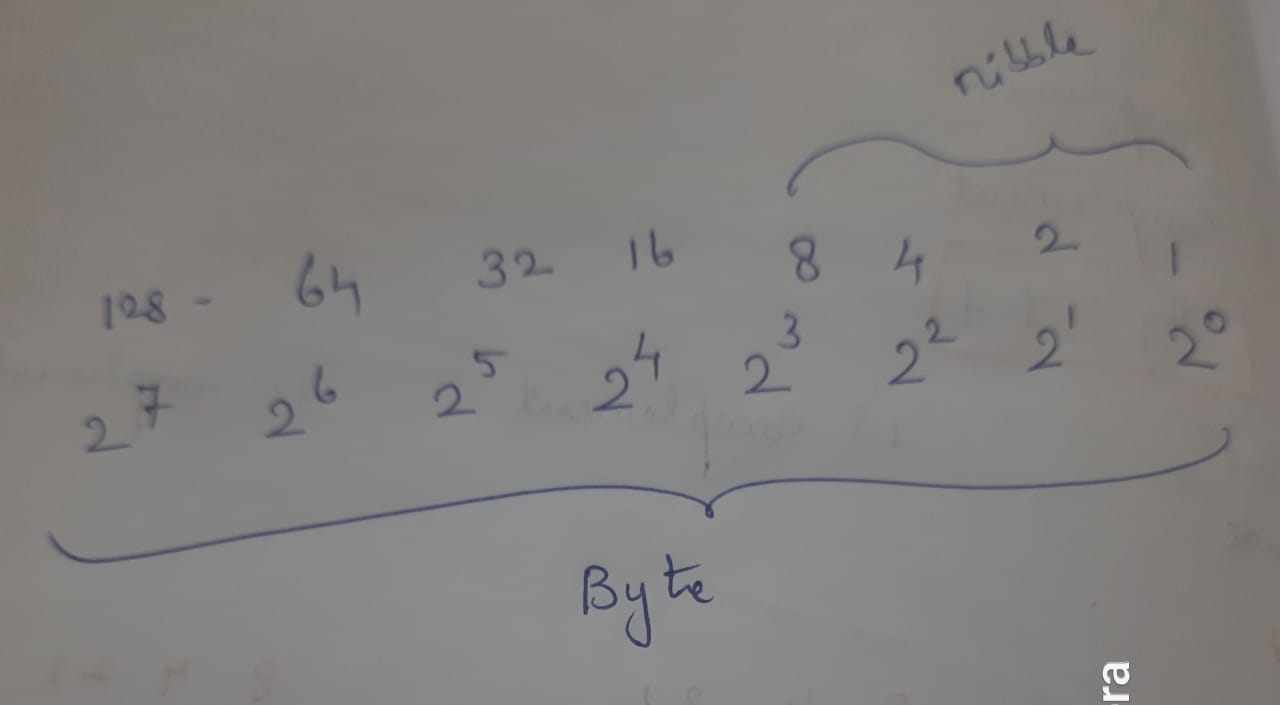 nibble
128 - 64 32 16 8 4 2 1
2⁷ 2⁶ 2⁵ 2⁴ 2³ 2² 2¹ 2⁰
Byte
ra